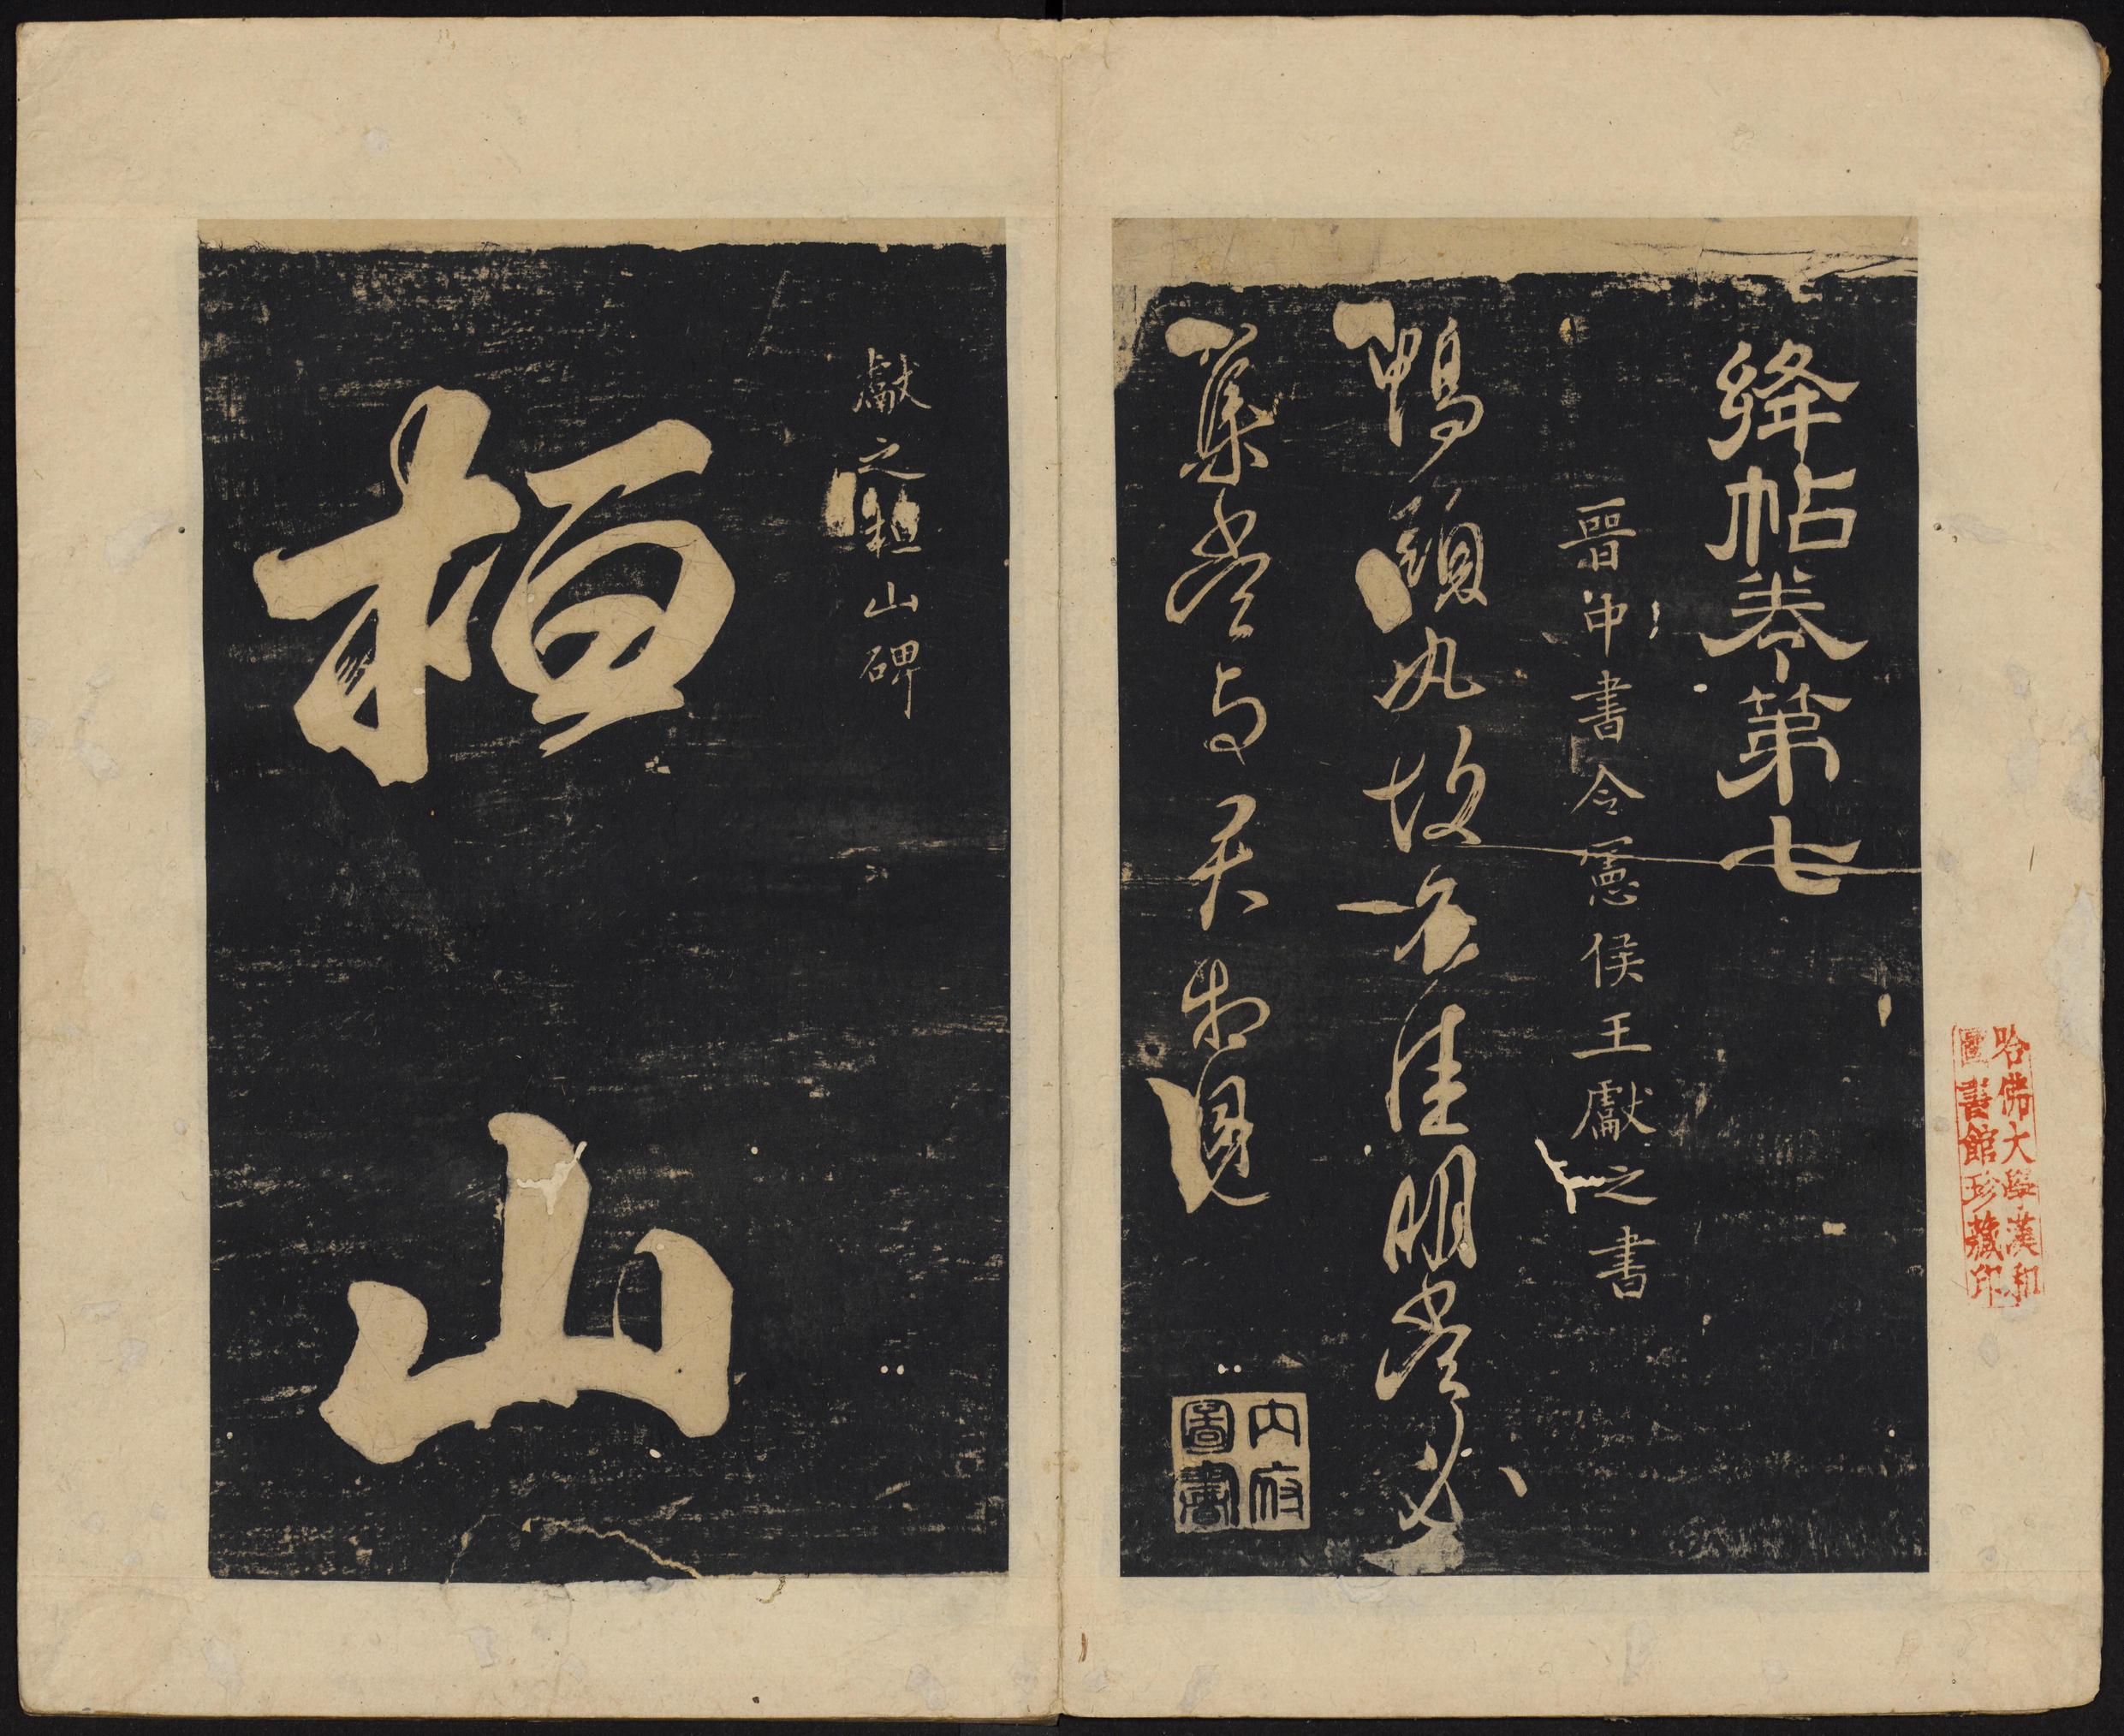 絳帖卷第七
晉中書令憲侯王獻之書
鴨頭丸故不佳明當必
集當與君相見
內府圖書
獻之桓山碑
桓
山
哈佛大學漢和
圖書館珍藏印